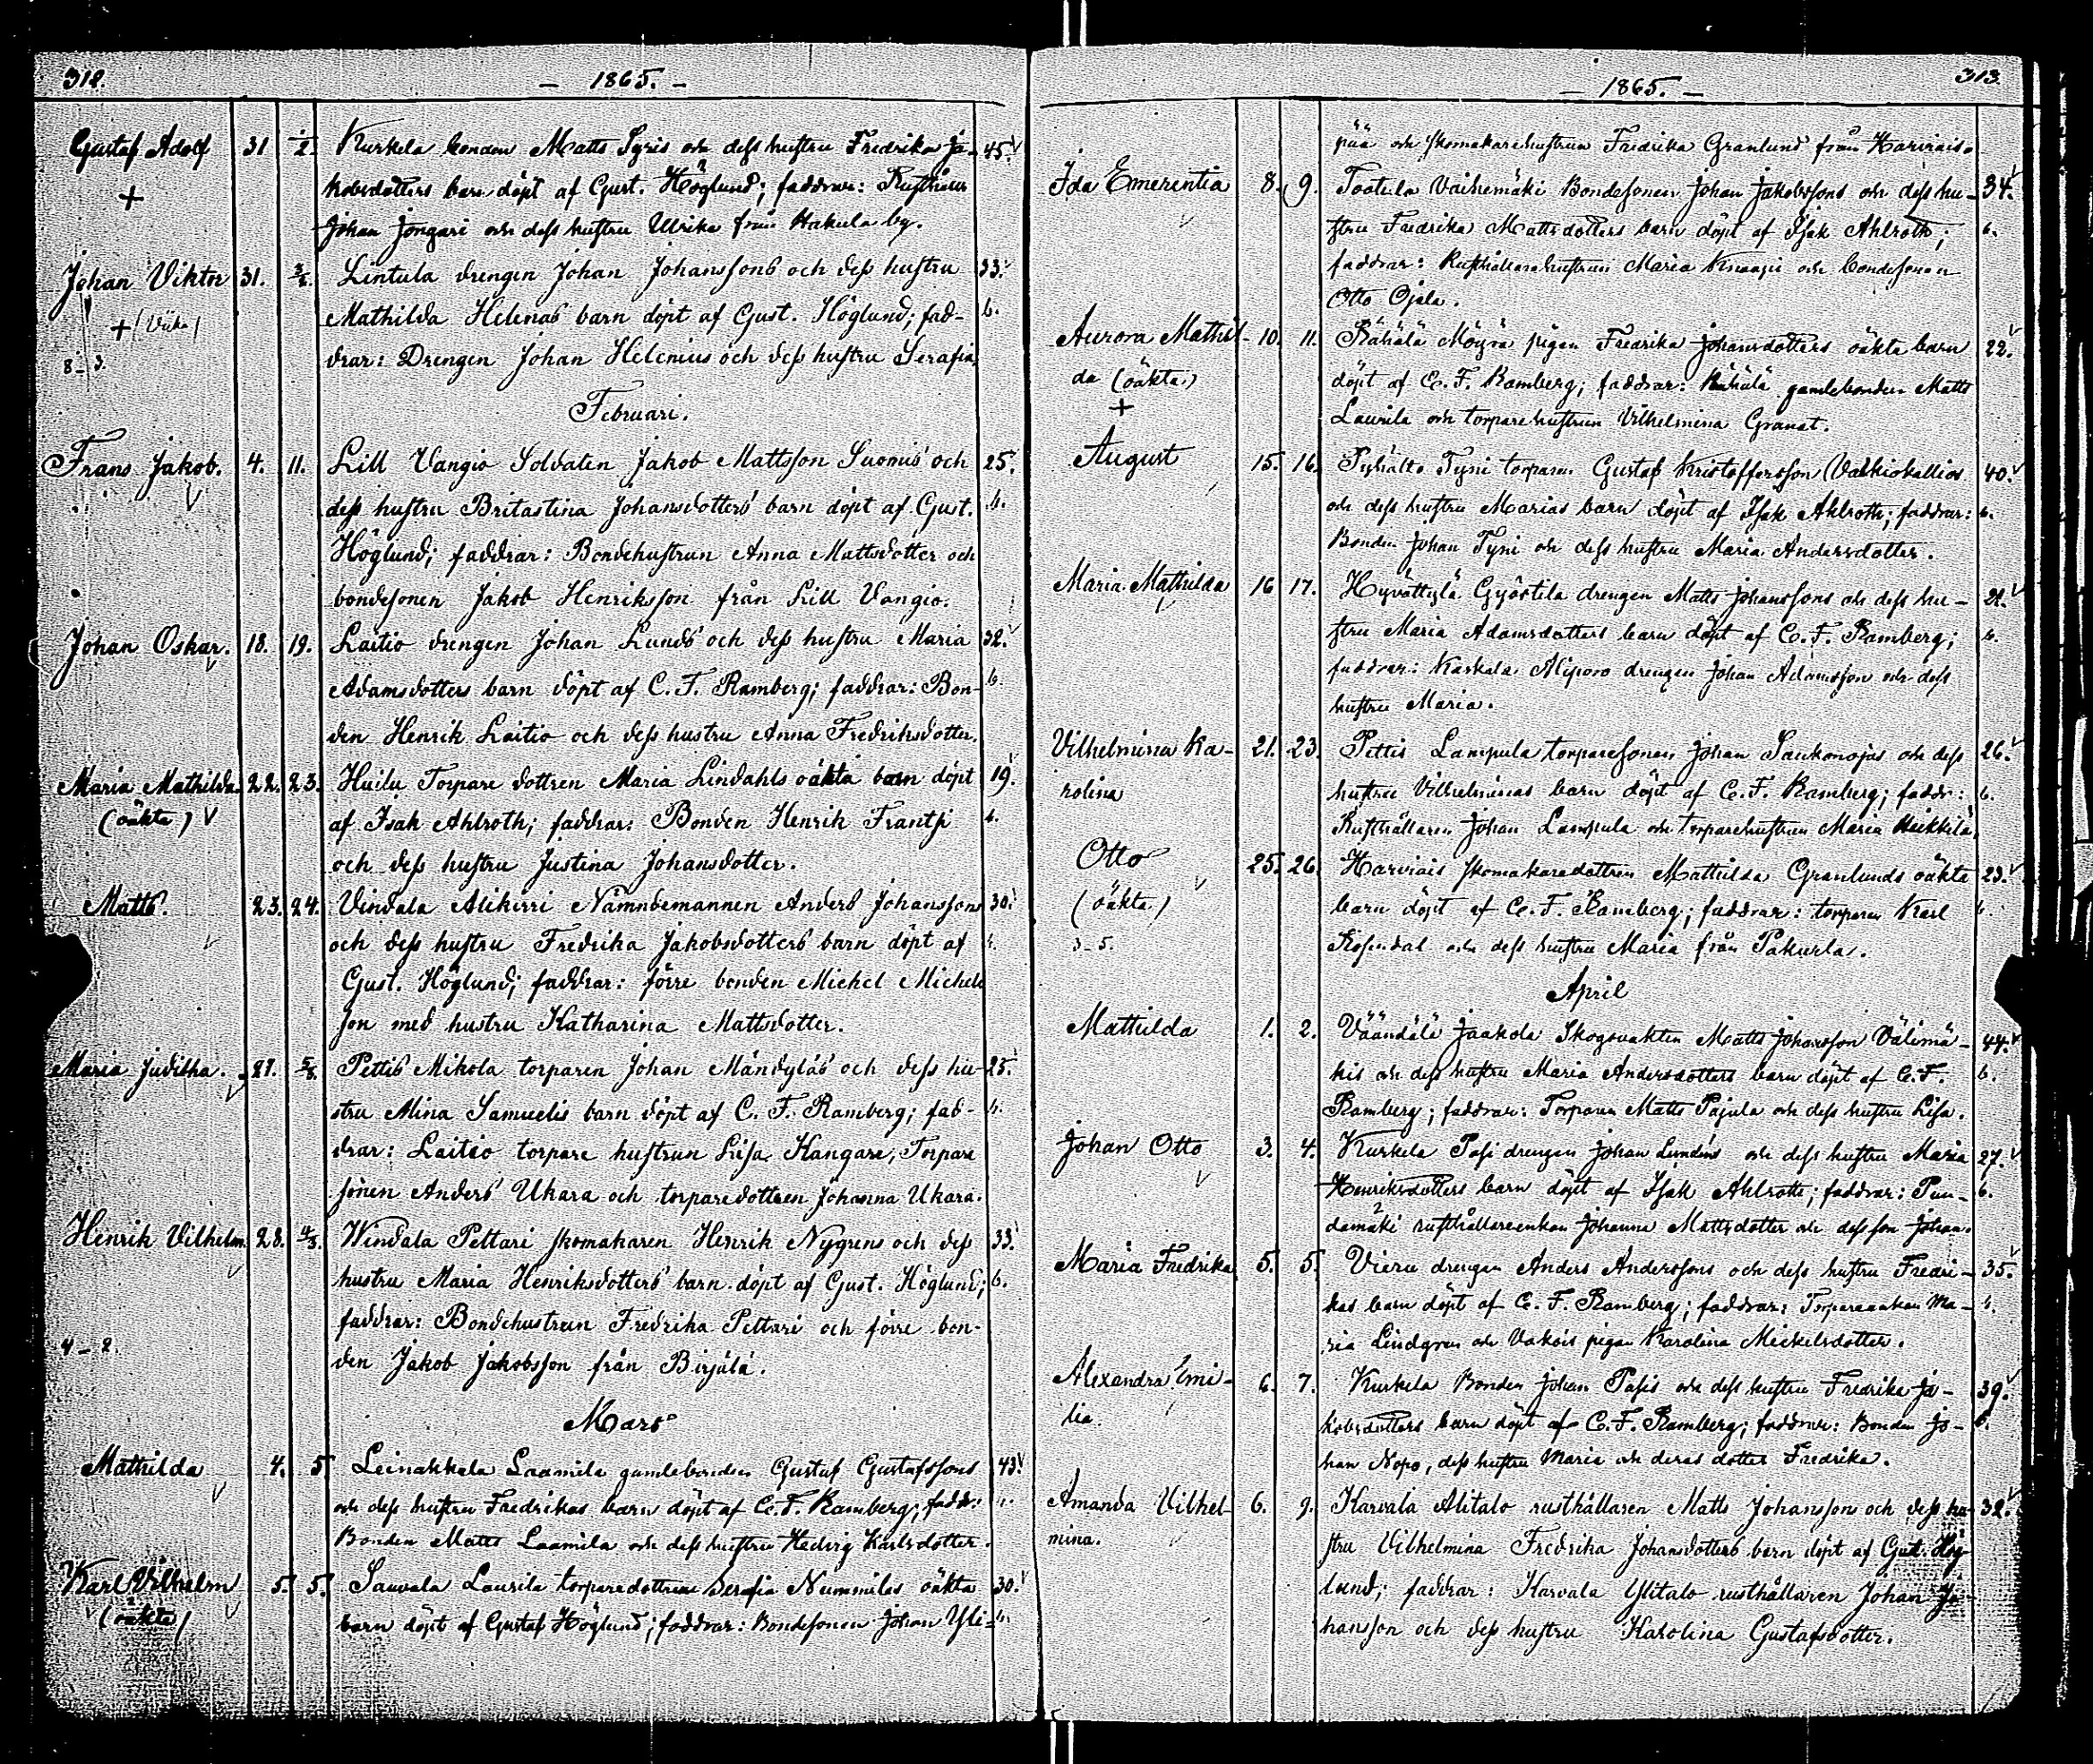 312.
- 1865. -
Gustaf Adolf 31 1/2. Kurkela bonden Matts Syris och dess hustru Fredrika Ja- 45.
+ kobsdotters barn döpt af Gust. Höglund; faddrar: Rusthållar
Johan Jongari och dess hustru Ulrika från Hakula by.
Johan Viktor 31. 3/2. Lintula drengen Johan Johanssons och dess hustru 33.
+ Mathilda Helenas barn döpt af Gust. Höglund; fad- b.
8-3. drar: Drengen Johan Helenius och dess hustru Serafia.
Februari.
Frans Jakob. 4. 11. Lill Vangio Soldaten Jakob Mattsson Suomis och 25.
dess hustru Britastina Johansdotters barn döpt af Gust. b.
Höglund; faddrar: Bondehustrun Anna Mattsdotter och
bondesonen Jakob Henriksson från Lill Vangio.
Johan Oskar. 18. 19. Laitio drengen Johan Lunds och dess hustru Maria 32.
Adamsdotters barn döpt af C. F. Ramberg; faddrar: Bon- b.
den Henrik Laitio och dess hustru Anna Fredriksdotter.
Maria Mathilda 22. 23. Huilu Torpare dottren Maria Lindahls oäkta barn döpt 19.
(oäkta) af Isak Ahlroth; faddrar: Bonden Henrik Frantsi b.
och dess hustru Justina Johansdotter.
Matts. 23. 24. Vindala Alikirri Nämndemannen Anders Johanssons 30.
och dess hustru Fredrika Jakobsdotters barn döpt af b.
Gust. Höglund; faddrar: förre bonden Michel Michels
son med hustru Katharina Mattsdotter.
Maria Juditha. 27. 5/3. Pettis Mikola torparen Johan Mändyläs och dess hu- 25.
stru Mina Samuelis barn döpt af C. F. Ramberg; fad- b.
drar: Laitio torpare hustrun Lisa Kangare, Torpare
sonen Anders Ukara och torparedottren Johanna Ukara.
Henrik Vilhelm 28. 4/3. Windala Pettari skomakaren Henrik Nygrens och dess 33.
hustru Maria Henriksdotters barn döpt af Gust. Höglund; b.
faddrar: Bondehustrun Fredrika Pettari och förre bon-
4-2. den Jakob Jakobsson från Birjälä.
Mars
Mathilda 4. 5. Leinakkala Laamila gamlebonden Gustaf Gustafssons 43.
och dess hustru Fredrikas barn döpt af C. F. Ramberg; faddr: b.
Bonden Matts Laamila och dess hustru Hedvig Karlsdotter.
Karl Vilhelm 5. 5. Sauvala Laurila torparedottren Serafia Nummilas oäkta 30.
(oäkta) barn döpt af Gustaf Höglund; faddrar: Bondesonen Johan Yli- b.
313.
- 1865. -
pää och skomakarehustrun Fredrika Granlund från Harviais.
Ida Emerentia 8. 9. Tootula Vaihemäki Bondesonen Johan Jakobssons och dess hu- 34.
stru Fredrika Mattsdotters barn döpt af Isak Ahlroth; b.
faddrar: Rusthållarehustrun Maria Knaapi och bondesonen
Otto Ojala.
Aurora Mathil- 10. 11. Rähälä Möyrä pigan Fredrika Johansdotters oäkta barn 22.
da (oäkta) döpt af C. F. Ramberg; faddrar: Rähälä gamlebonden Matts
+ Laurila och torparehustrun Vilhelmina Granat.
August 15. 16. Pyhälto Tyni torparen Gustaf Kristoffersson Valkiokallios 40.
och dess hustru Marias barn döpt af Isak Ahlroth; faddrar: b.
Bonden Johan Tyni och dess hustru Maria Andersdotter.
Maria Mathilda 16 17. Hyvättylä Gyöstilä drengen Matts Johanssons och dess hu- 21.
stru Maria Adamsdotters barn döpt af C. F. Ramberg; b.
faddrar: Kaskala Aliporo drengen Johan Adamsson och dess
hustru Maria.
Vilhelmina Ka- 21. 23. Pettis Lampula torparesonen Johan Saukonojas och dess 26.
rolina hustru Vilhelminas barn döpt af C. F. Ramberg; faddr: b.
Rusthållaren Johan Lampula och torparehustrun Maria Heikkilä.
Otto 25. 26. Harviais skomakaredottren Mathilda Granlunds oäkta 23.
(oäkta) barn döpt af C. F. Ramberg; faddrar: torparen Karl b.
3-5. Rosendal och dess hustru Maria från Pakurla.
April
Mathilda 1. 2. Väändälä Jaakola Skogsvakten Matts Johansson Välimä- 44.
kis och dess hustru Maria Andersdotters barn döpt af C. F. b.
Ramberg; faddrar: Torparen Matts Pajula och dess hustru Lisa.
Johan Otto 3. 4. Kurkela Pasi drengen Johan Lundéns och dess hustru Maria 27.
Henriksdotters barn döpt af Isak Ahlroth; faddrar: Pun- b.
damäki rusthållareenkan Johanna Mattsdotter och dess son Johan.
Maria Fredrika 5. 5. Vieru drengen Anders Anderssons och dess hustru Fredri- 35.
kas barn döpt af C. F. Ramberg; faddrar: Torpareenkan Ma- b.
ria Lindgren och Vakois pigan Karolina Mickelsdotter.
Alexandra Emi- 6. 7. Kurkela Bonden Johan Pasis och dess hustru Fredrika Ja- 39.
lia. kobsdotters barn döpt af C. F. Ramberg; faddrar: Bonden Jo- b.
han Nopo, dess hustru Maria och deras dotter Fredrika.
Amanda Vilhel- 6. 9. Karvala Alitalo rusthållaren Matts Johanssons och dess hu- 32.
mina. stru Vilhelmina Fredrika Johansdotters barn döpt af Gust. Hög-
lund; faddrar: Karvala Ylitalo rusthållaren Johan Jo-
hansson och dess hustru Karolina Gustafsdotter.